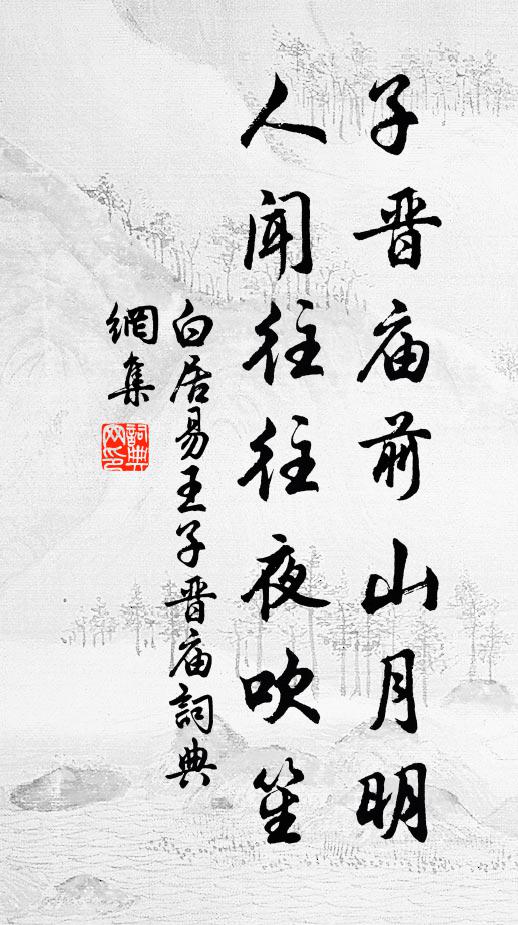 子晋庙前山月明
人闻往往夜吹笙
白居易王子晋庙詞典
網集
詞典
网印